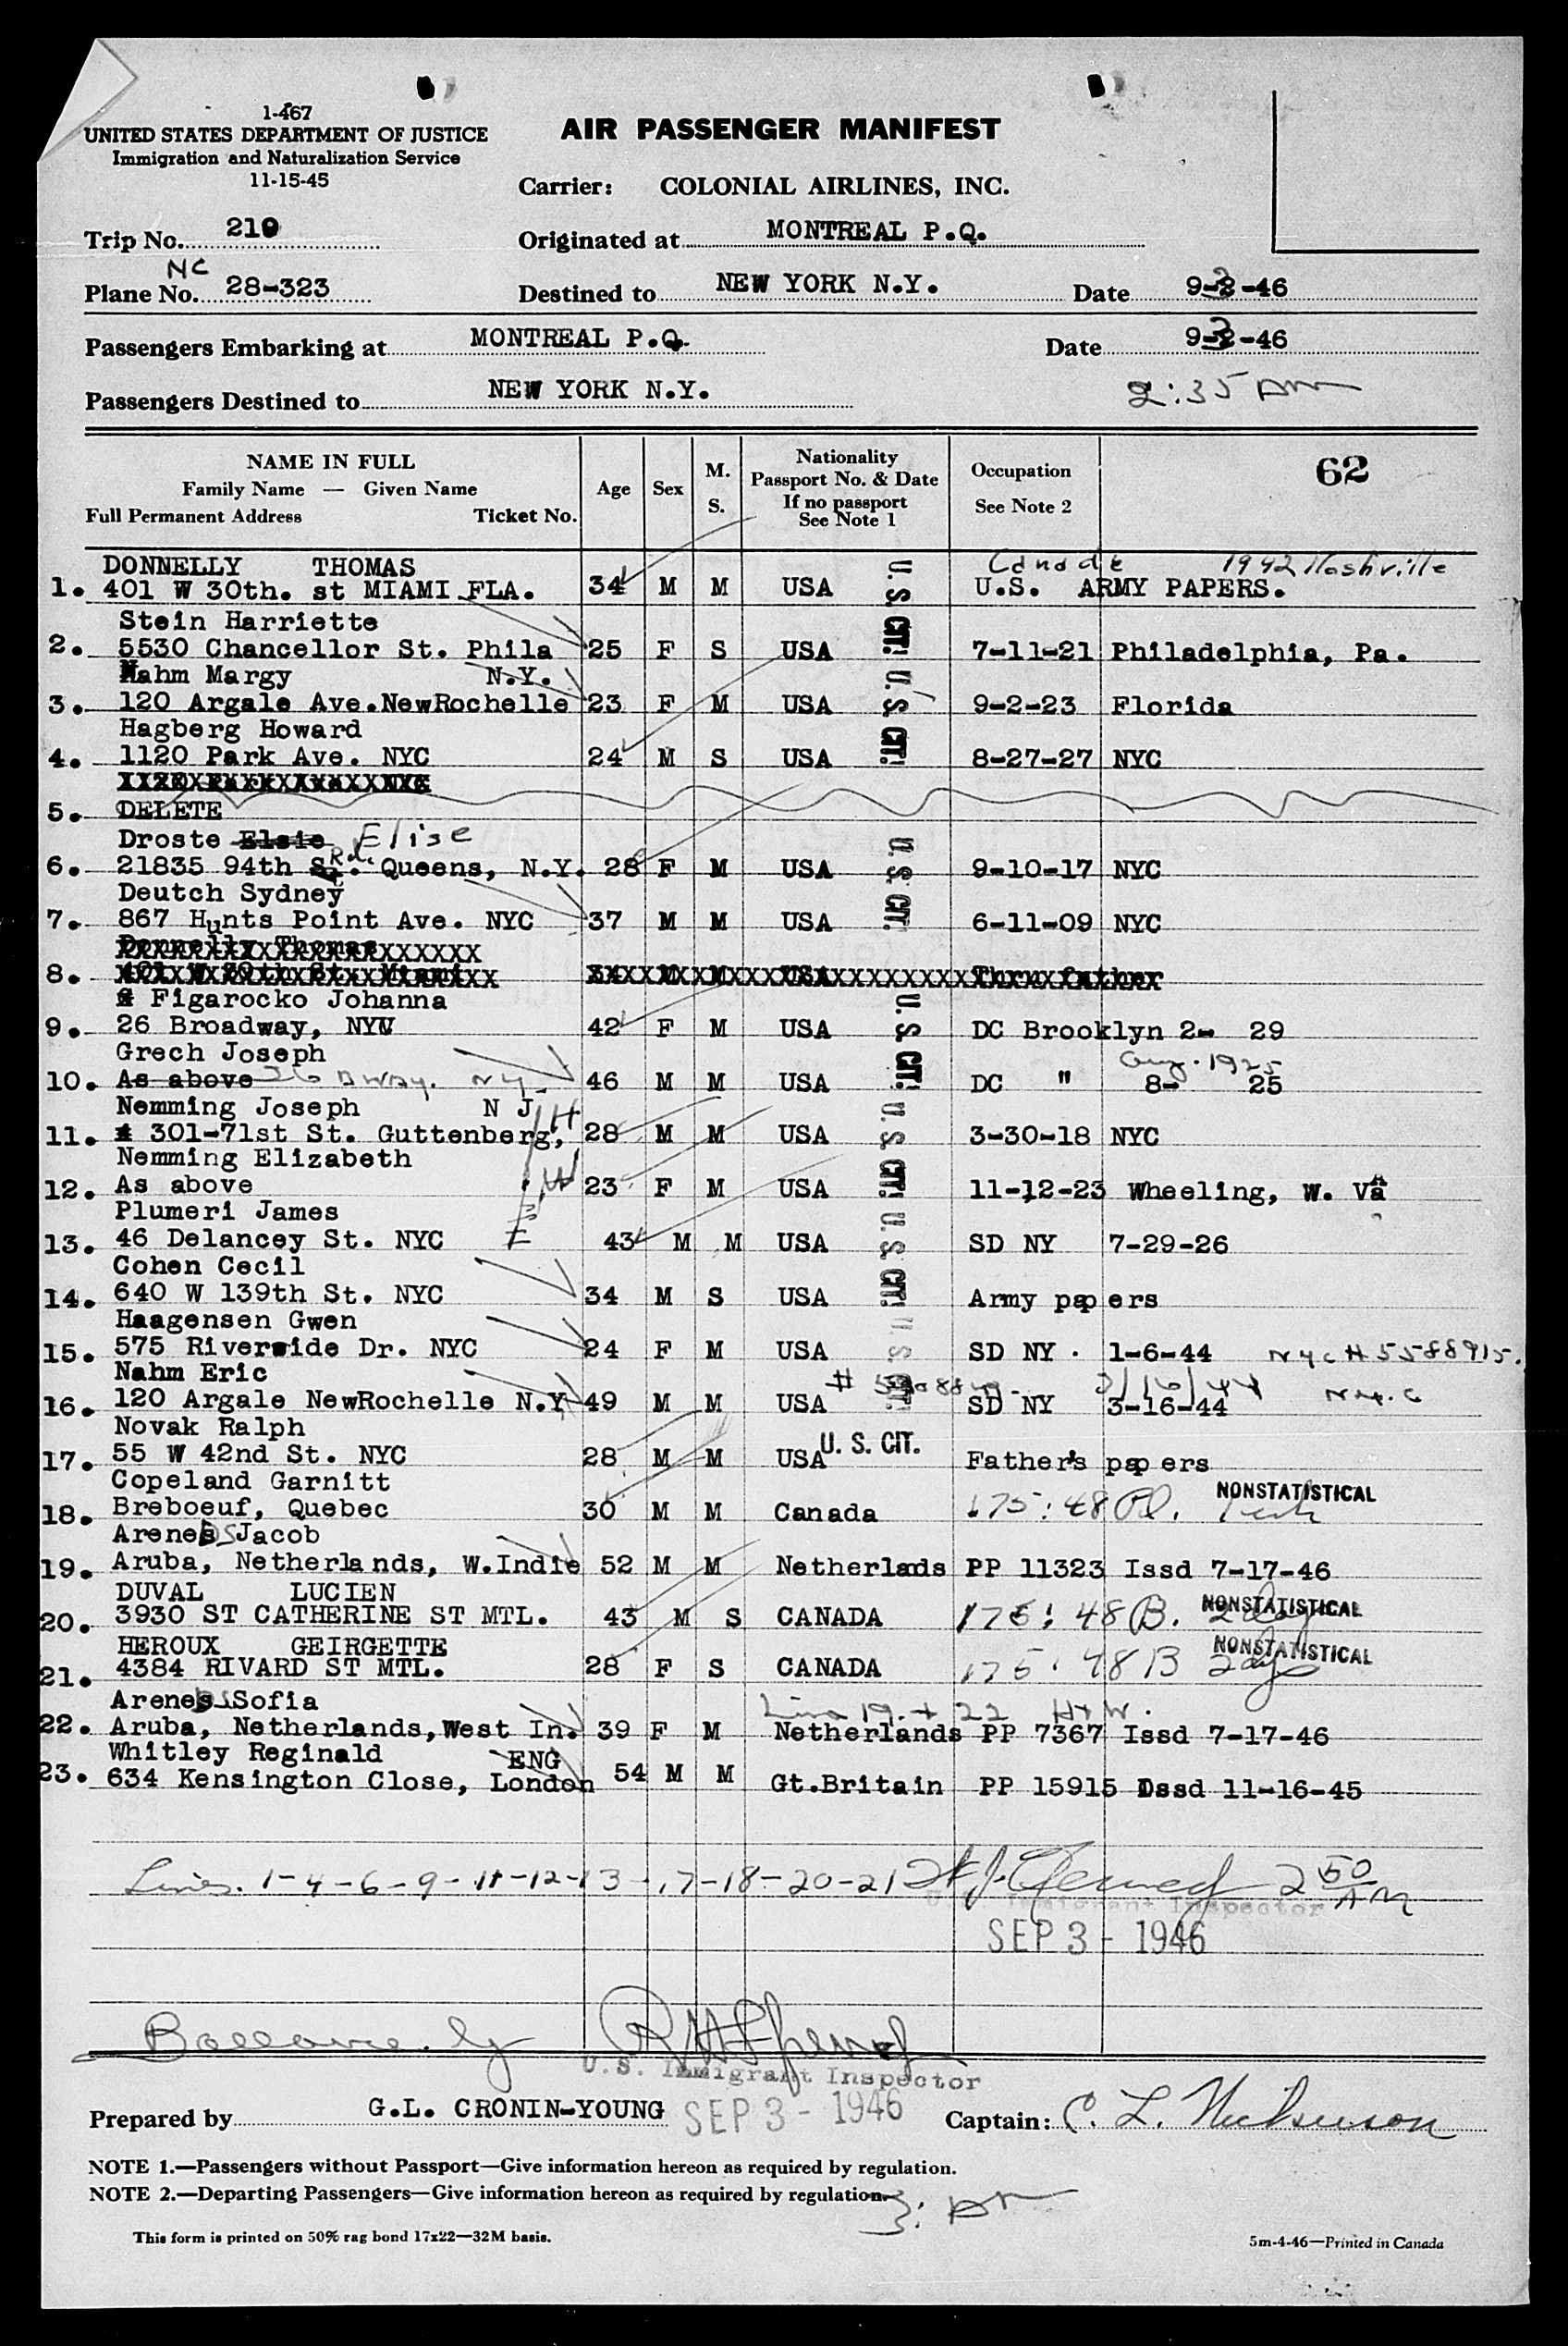 1-467
UNITED STATES DEPARTMENT OF JUSTICE
Immigration and Naturalization Service
11-15-45
AIR PASSENGER MANIFEST
Carrier: COLONIAL AIRLINES, INC.
Trip No. 210
Originated at MONTREAL P.Q.
NC
Plane No. 28-323
Destined to NEW YORK N.Y.
Date 9-3-46
Passengers Embarking at MONTREAL P.Q.
Date 9-3-46
Passengers Destined to NEW YORK N.Y.
2:35 AM
NAME IN FULL
Family Name — Given Name
Full Permanent Address Ticket No.
Age Sex M. S.
Nationality
Passport No. & Date
If no passport
See Note 1
Occupation
See Note 2
62
DONNELLY THOMAS Canada 1942 Nashville
1. 401 W 30th. st MIAMI FLA. 34 M M USA U.S. ARMY PAPERS.
U.S. CIT.
Stein Harriette
2. 5530 Chancellor St. Phila 25 F S USA 7-11-21 Philadelphia, Pa.
Nahm Margy N.Y.
3. 120 Argale Ave.NewRochelle 23 F M USA 9-2-23 Florida
U.S. CIT.
Hagberg Howard
4. 1120 Park Ave. NYC 24 M S USA 8-27-27 NYC
5. DELETE
Droste Elsie Elise
6. 21835 94th Rd. Queens, N.Y. 28 F M USA 9-10-17 NYC
U.S. CIT.
Deutch Sydney
7. 867 Hunts Point Ave. NYC 37 M M USA 6-11-09 NYC
Donnelly Thomas
8. 401 W 30th St. Miami 34 M M USA Thru father
Figarocko Johanna
9. 26 Broadway, NYC 42 F M USA DC Brooklyn 2- 29
U.S. CIT.
Grech Joseph Aug. 1925
10. As above 26 Bway. NY. 46 M M USA DC " 8- 25
Nemming Joseph N J H
11. 301-71st St. Guttenberg, 28 M M USA 3-30-18 NYC
U.S. CIT.
Nemming Elizabeth W
12. As above 23 F M USA 11-12-23 Wheeling, W. Va
Plumeri James
13. 46 Delancey St. NYC 43 M M USA SD NY 7-29-26
U.S. CIT.
Cohen Cecil
14. 640 W 139th St. NYC 34 M S USA Army papers
Haagensen Gwen
15. 575 Riverside Dr. NYC 24 F M USA SD NY 1-6-44 NYC # 5588915.
U.S. CIT.
Nahm Eric 3/16/44 N.Y.C
16. 120 Argale NewRochelle N.Y 49 M M USA SD NY 3-16-44
Novak Ralph
17. 55 W 42nd St. NYC 28 M M USA U. S. CIT. Father's papers
Copeland Garnitt NONSTATISTICAL
18. Breboeuf, Quebec 30 M M Canada 175:48
Arends Jacob
19. Aruba, Netherlands, W.Indie 52 M M Netherlads PP 11323 Issd 7-17-46
DUVAL LUCIEN NONSTATISTICAL
20. 3930 ST CATHERINE ST MTL. 43 M S CANADA 175:48 B.
HEROUX GEIRGETTE NONSTATISTICAL
21. 4384 RIVARD ST MTL. 28 F S CANADA 175.48 B 2 days
Arends Sofia Line 19 + 22 H+W.
22. Aruba, Netherlands,West In. 39 F M Netherlands PP 7367 Issd 7-17-46
Whitley Reginald ENG
23. 634 Kensington Close, London 54 M M Gt.Britain PP 15915 Dssd 11-16-45
Lines. 1-4-6-9-11-12-13-17-18-20-21 2 50 AM
U.S. Immigrant Inspector
SEP 3 - 1946
U.S. Immigrant Inspector
Prepared by G.L. CRONIN-YOUNG
SEP 3 - 1946
Captain: C. L.
NOTE 1.—Passengers without Passport—Give information hereon as required by regulation.
NOTE 2.—Departing Passengers—Give information hereon as required by regulation.
This form is printed on 50% rag bond 17x22—32M basis.
5m-4-46—Printed in Canada